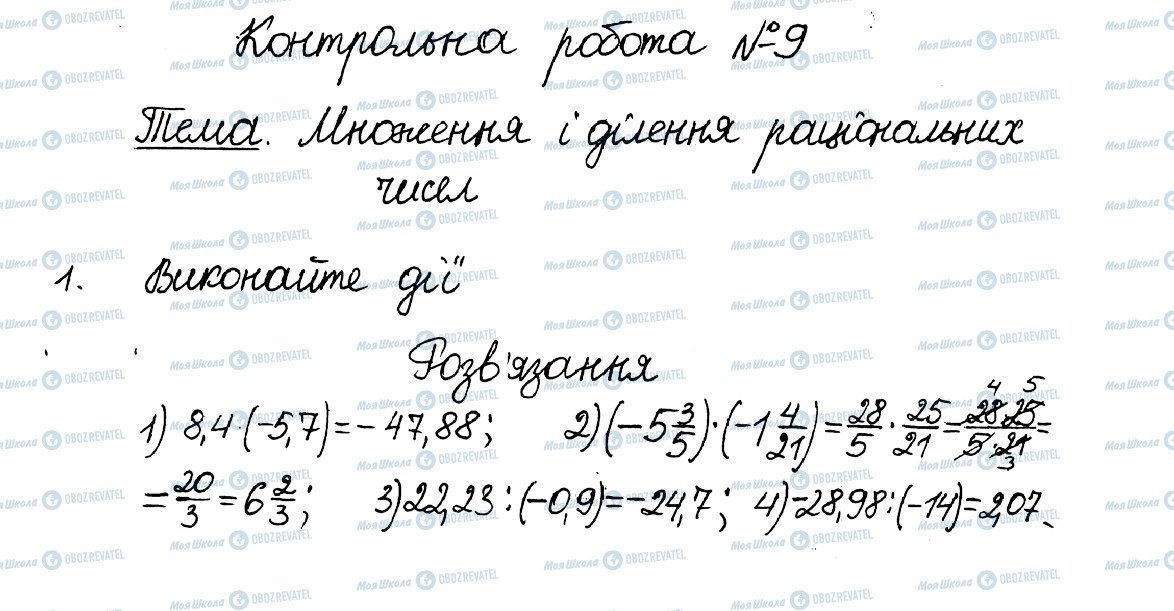 Контрольна робота №9
Тема. Множення і ділення раціональних
чисел
1. Виконайте дії
Розв'язання
1) 8,4·(-5,7)=-47,88; 2)(-5 3/5)·(-1 4/21)=28/5·25/21=28·25/5·21=
=20/3=6 2/3; 3)22,23:(-0,9)=-24,7; 4)-28,98:(-14)=2,07.